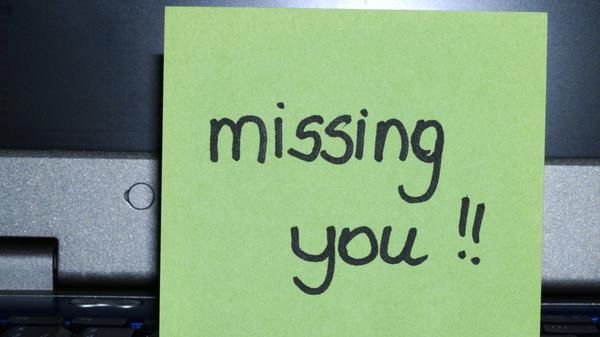 missing
you !!